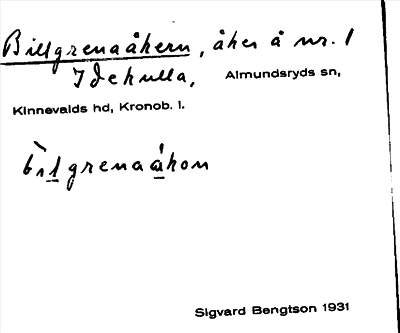 Billgrenaåkern, åker å nr. 1
Idehulla, Almundsryds sn,
Kinnevalds hd, Kronob. l.
bìlgrenaåkon
Sigvard Bengtson 1931